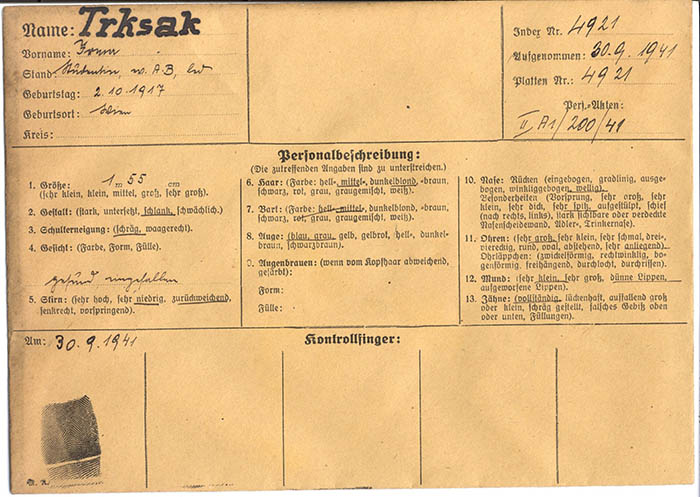 Name: Trksak
Vorname: Irma
Stand: Studentin, w. AB, led
Geburtstag: 2.10.1917
Geburtsort: Wien
Kreis:
Index Nr. 4921
Aufgenommen: 30.9.1941
Platten Nr.: 4921
Pers.-Akten:
II A1/200/41
Personalbeschreibung:
(Die zutreffenden Angaben sind zu unterstreichen.)
1. Größe: 1 m 55 cm
(sehr klein, klein, mittel, groß, sehr groß).
2. Gestalt: (stark, untersetzt, schlank, schwächlich).
3. Schulterneigung: (schräg, waagerecht).
4. Gesicht: (Farbe, Form, Fülle).
gesund eingefallen
5. Stirn: (sehr hoch, sehr niedrig, zurückweichend,
senkrecht, vorspringend).
6. Haar: (Farbe: hell-, mittel-, dunkelblond, -braun,
schwarz, rot, grau, graugemischt, weiß).
7. Bart: (Farbe: hell-, mittel-, dunkelblond, -braun,
schwarz, rot, grau, graugemischt, weiß).
8. Auge: (blau, grau, gelb, gelbrot, hell-, dunkel-
braun, schwarzbraun).
9. Augenbrauen: (wenn vom Kopfhaar abweichend,
gefärbt):
Form:
Fülle:
10. Nase: Rücken (eingebogen, gradlinig, ausge-
bogen, winkliggebogen, wellig).
Besonderheiten (Vorsprung, sehr groß, sehr
klein, sehr dick, sehr spitz, aufgestülpt, schief
(nach rechts, links), stark sichtbare oder verdeckte
Nasenscheidewand, Adler-, Trinkernase).
11. Ohren: (sehr groß, sehr klein, sehr schmal, drei-,
viereckig, rund, oval, abstehend, sehr anliegend)
Ohrläppchen: (zwickelförmig, rechtwinklig, bo-
genförmig, freihängend, durchlocht, durchrissen).
12. Mund: (sehr klein, sehr groß, dünne Lippen,
aufgeworfene Lippen).
13. Zähne: (vollständig, lückenhaft, auffallend groß
oder klein, schräg gestellt, falsches Gebiß oben
oder unten, Füllungen).
Am: 30.9.1941
Kontrollfinger: